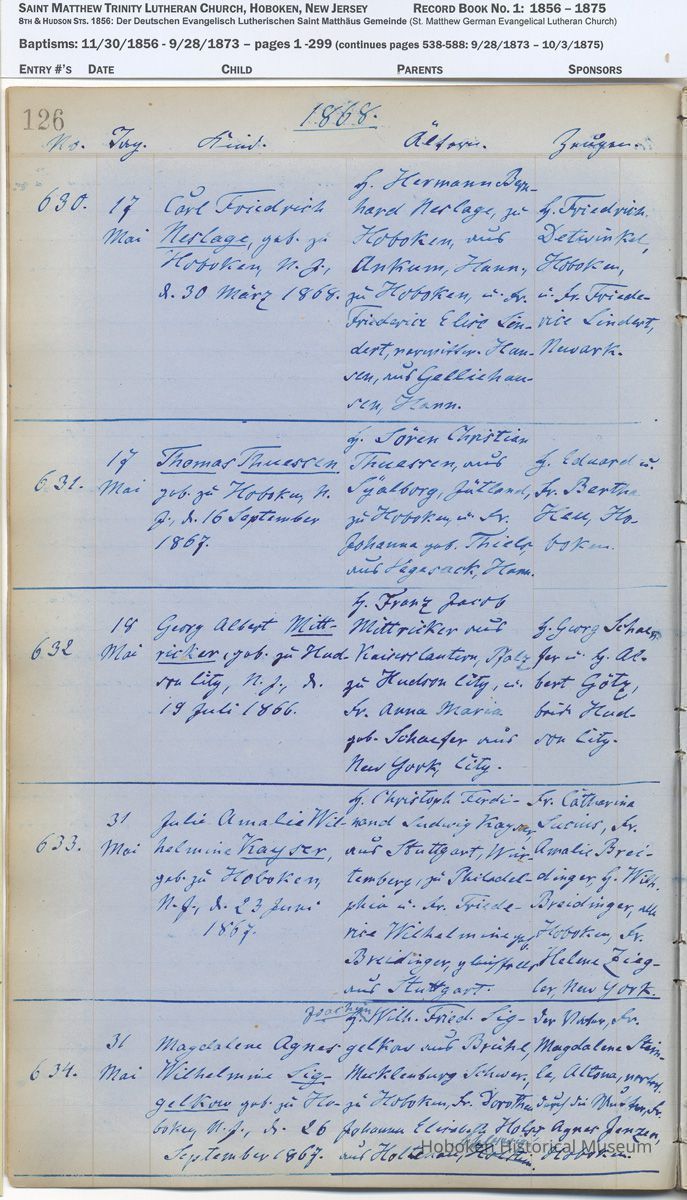 SAINT MATTHEW TRINITY LUTHERAN CHURCH, HOBOKEN, NEW JERSEY RECORD BOOK NO. 1: 1856 – 1875
8TH & HUDSON STS. 1856: Der Deutschen Evangelisch Lutherischen Saint Matthäus Gemeinde (St. Matthew German Evangelical Lutheran Church)
Baptisms: 11/30/1856 - 9/28/1873 – pages 1 -299 (continues pages 538-588: 9/28/1873 – 10/3/1875)
ENTRY #'S DATE CHILD PARENTS SPONSORS
126
1868.
No. Tag. Kind. Ältern. Zeugen.
630.
17
Mai
Carl Friedrich
Neslage, geb. zu
Hoboken, N. J.,
d. 30 März 1868.
H. Hermann Bern-
hard Neslage, zu
Hoboken, aus
Ankum, Hann.,
zu Hoboken, u. Fr.
Friederice Elise Lin-
dert, verwittw. Han-
sen, aus Gelliehau-
sen, Hann.
H. Friedrich
Detwinkel,
Hoboken,
u. Fr. Friede-
rice Lindert,
Newark.
631.
17
Mai
Thomas Thuessen
geb. zu Hoboken, N.
J., d. 16 September
1867.
H. Sören Christian
Thuessen, aus
Jütland,
zu Hoboken, u. Fr.
Johanna geb. Thiels,
aus Hann.
H. Eduard u.
Fr. Bertha
Ho-
boken.
632
18
Mai
Georg Albert Mitt-
ricker, geb. zu Hud-
son City, N. J., d.
19 Juli 1866.
H. Franz Jacob
Mittricker aus
Kaiserslautern, Pfalz
zu Hudson City, u.
Fr. Anna Maria
geb. Schaefer aus
New York City.
H. Georg Schae-
fer u. H. Al-
bert Götz,
beide Hud-
son City.
633.
31
Mai
Julie Amalie Wil-
helmine Kayser,
geb. zu Hoboken,
N. J., d. 23 Juni
1867.
H. Christoph Ferdi-
nand Ludwig Kayser
aus Stuttgart, Wür-
temberg, zu Philadel-
phia u. Fr. Friede-
rice Wilhelmine geb.
Breidinger, gleichfalls
aus Stuttgart.
Fr. Catharina
Lucius, Fr.
Amalie Brei-
dinger, H. Wilh.
Breidinger, alle
Hoboken, Fr.
Helene Zieg-
ler, New York.
634.
31
Mai
Magdalene Agnes
Wilhelmine Sig-
gelkow geb. zu Ho-
boken, N. J., d. 26
September 1867.
Joachim
H. Wilh. Fried. Sig-
gelkow aus Brühl,
Mecklenburg Schwer.,
zu Hoboken, Fr. Dorothea
Johanna Elisabeth
aus
Der Vater, Fr.
Magdalene Stein-
le, Altona,
durch die Mutter, Fr.
Agnes Jenzen,
Hoboken.
Hoboken Historical Museum